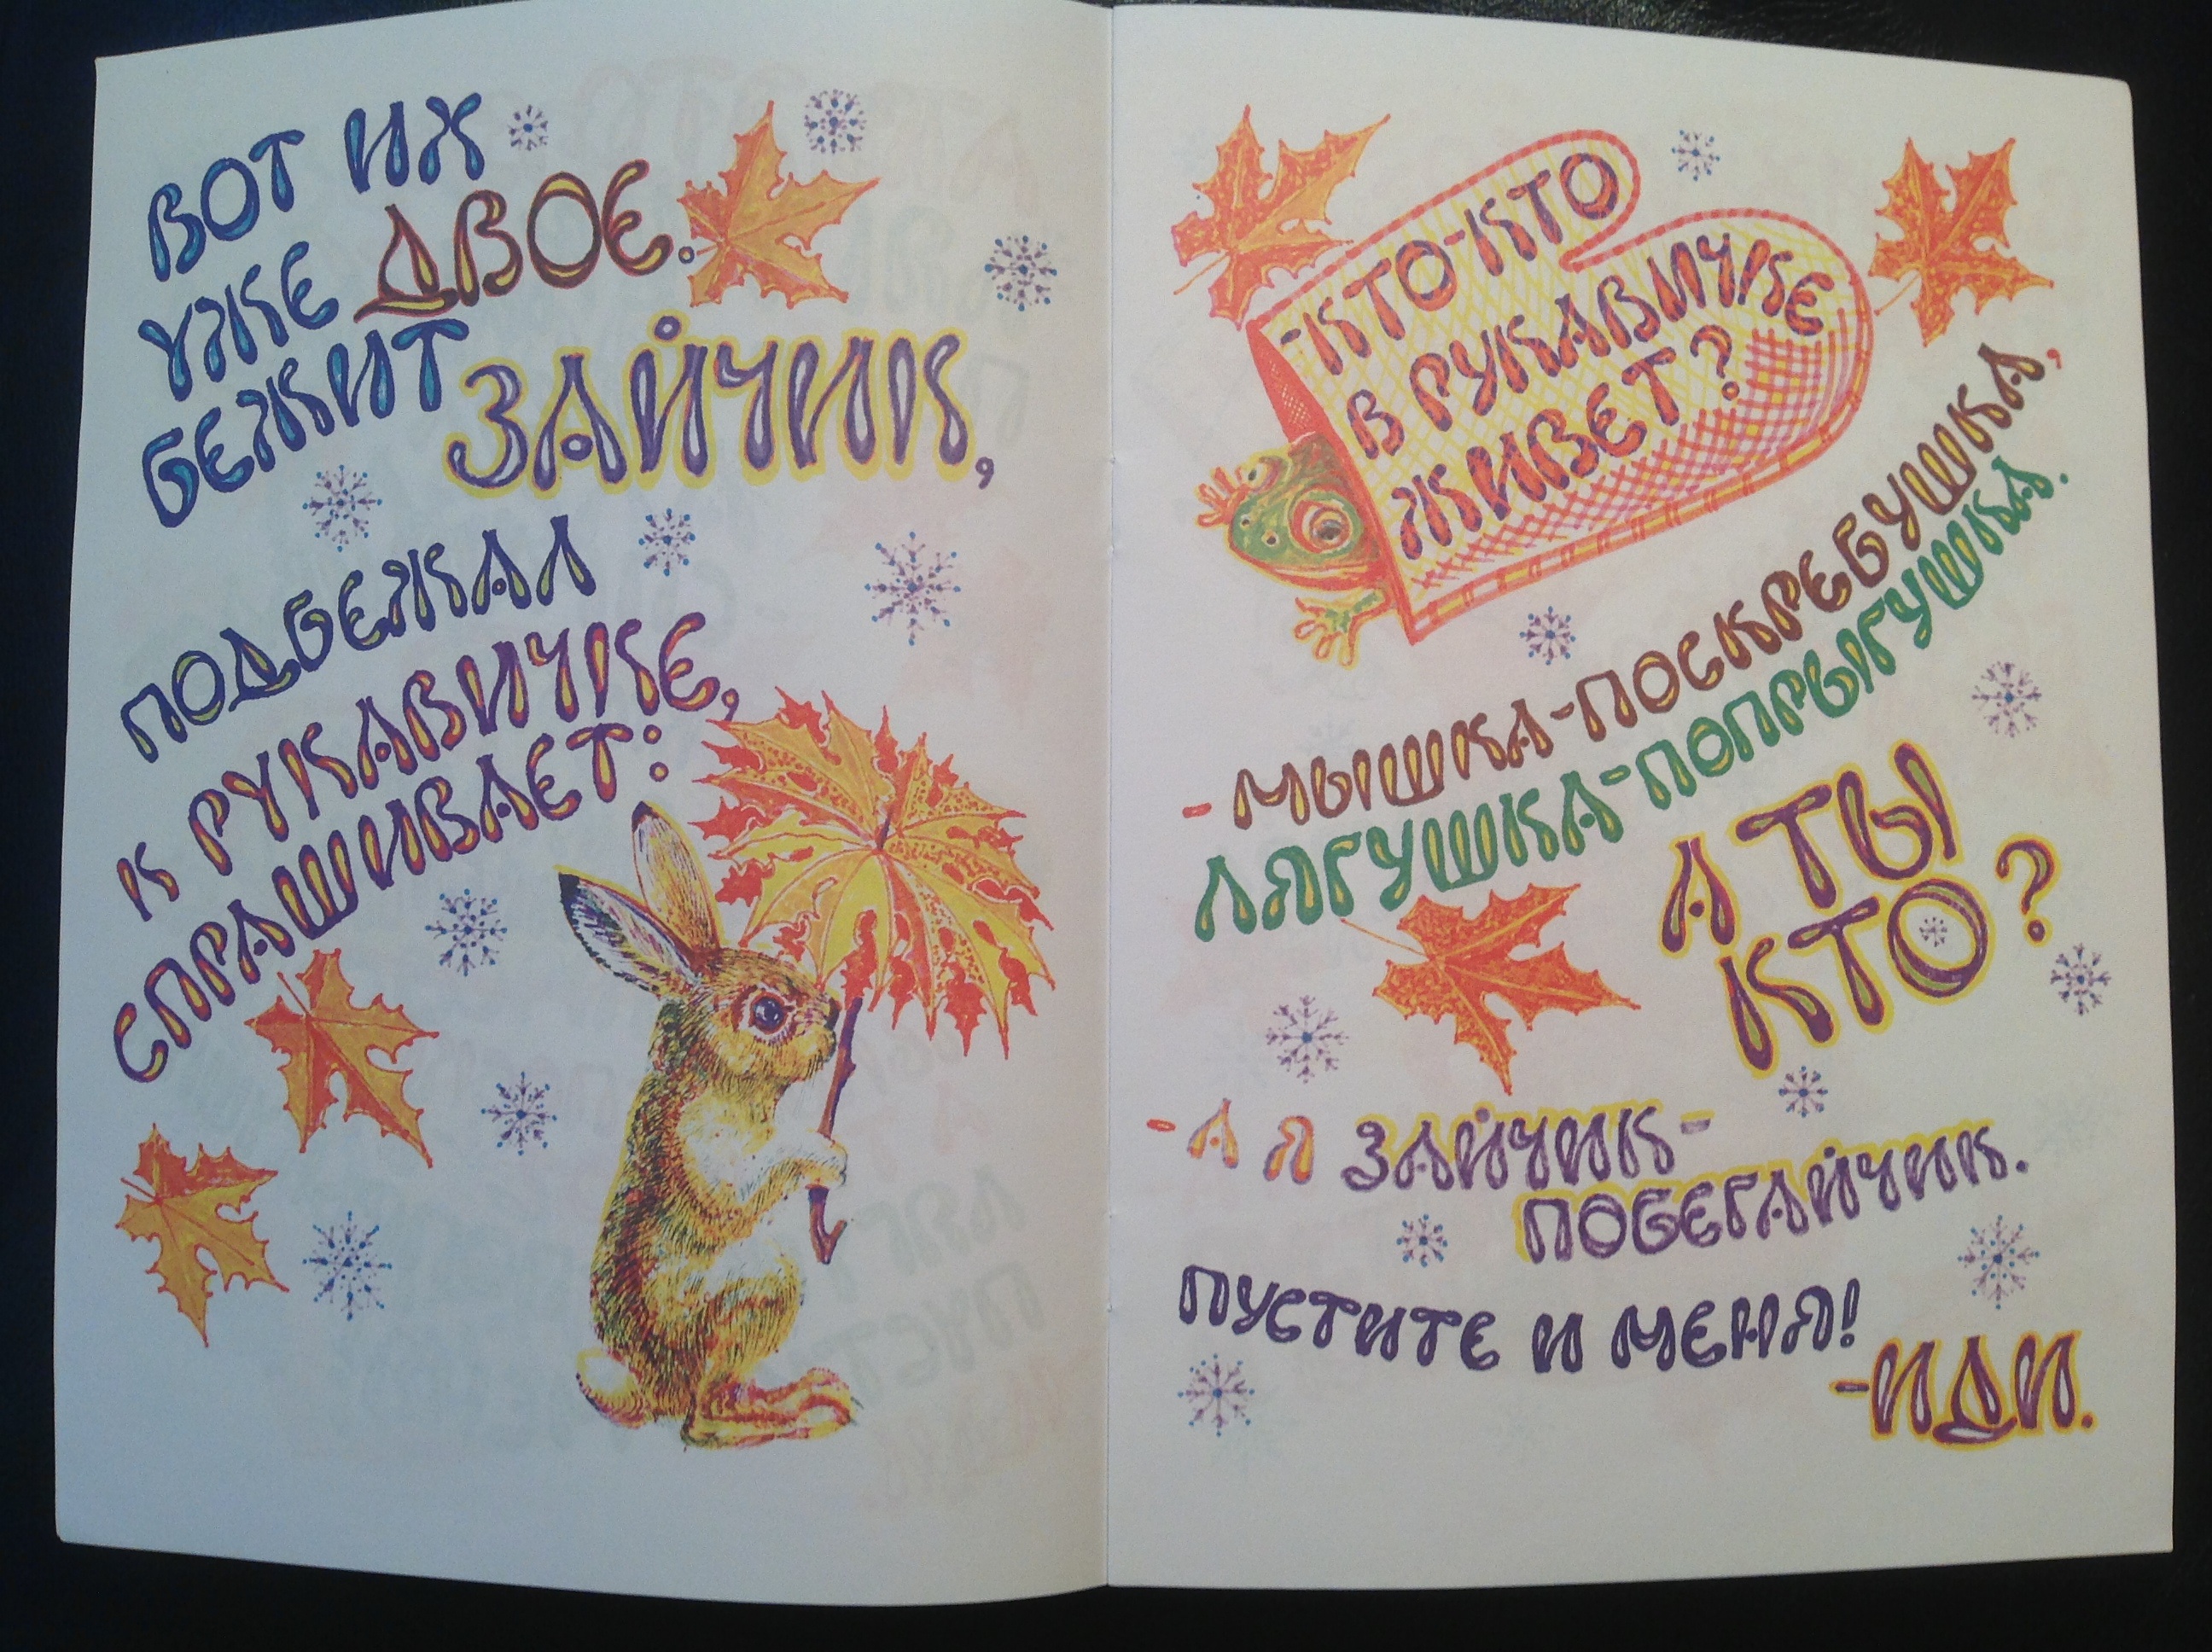 ВОТ ИХ
УЖЕ ДВОЕ.
БЕЖИТ ЗАЙЧИК,
ПОДБЕЖАЛ
К РУКАВИЧКЕ,
СПРАШИВАЕТ:
-КТО-КТО
В РУКАВИЧКЕ
ЖИВЕТ?
- МЫШКА-ПОСКРЕБУШКА,
ЛЯГУШКА-ПОПРЫГУШКА.
А ТЫ
КТО?
- А Я ЗАЙЧИК-
ПОБЕГАЙЧИК.
ПУСТИТЕ И МЕНЯ!
-ИДИ.